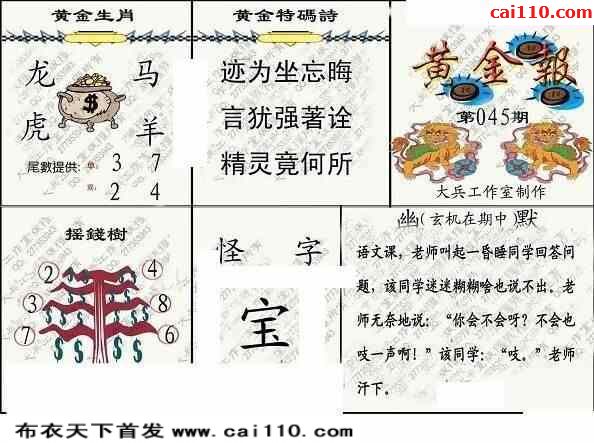 cai110.com
黄金生肖
龙 马
虎 羊
尾數提供: 单: 3 7
双: 2 4
黄金特碼詩
迹为坐忘晦
言犹强著诠
精灵竟何所
黄金報
第045期
大兵工作室制作
摇錢樹
2 4
3 8
7 6
怪 字
宝
幽(玄机在期中)默
语文课，老师叫起一昏睡同学回答问
题，该同学迷迷糊糊啥也说不出。老
师无奈地说：“你会不会呀？不会也
吱一声啊！”该同学：“吱。”老师
汗下。
布衣天下首发 www.cai110.com